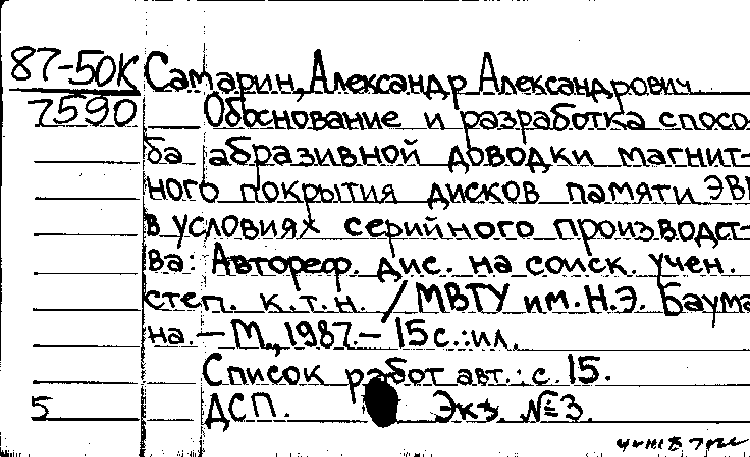 87-50К Самарин, Александр Александрович
7590 Обоснование и разработка спосо-
ба абразивной доводки магнит-
ного покрытия дисков памяти ЭВМ
в условиях серийного производст-
ва: Автореф. дис. на соиск. учен.
степ. к.т.н. / МВТУ им. Н.Э. Баума
на. – М., 1987. – 15 с.: ил.
Список работ авт.: с. 15.
5 ДСП. Экз. №3.